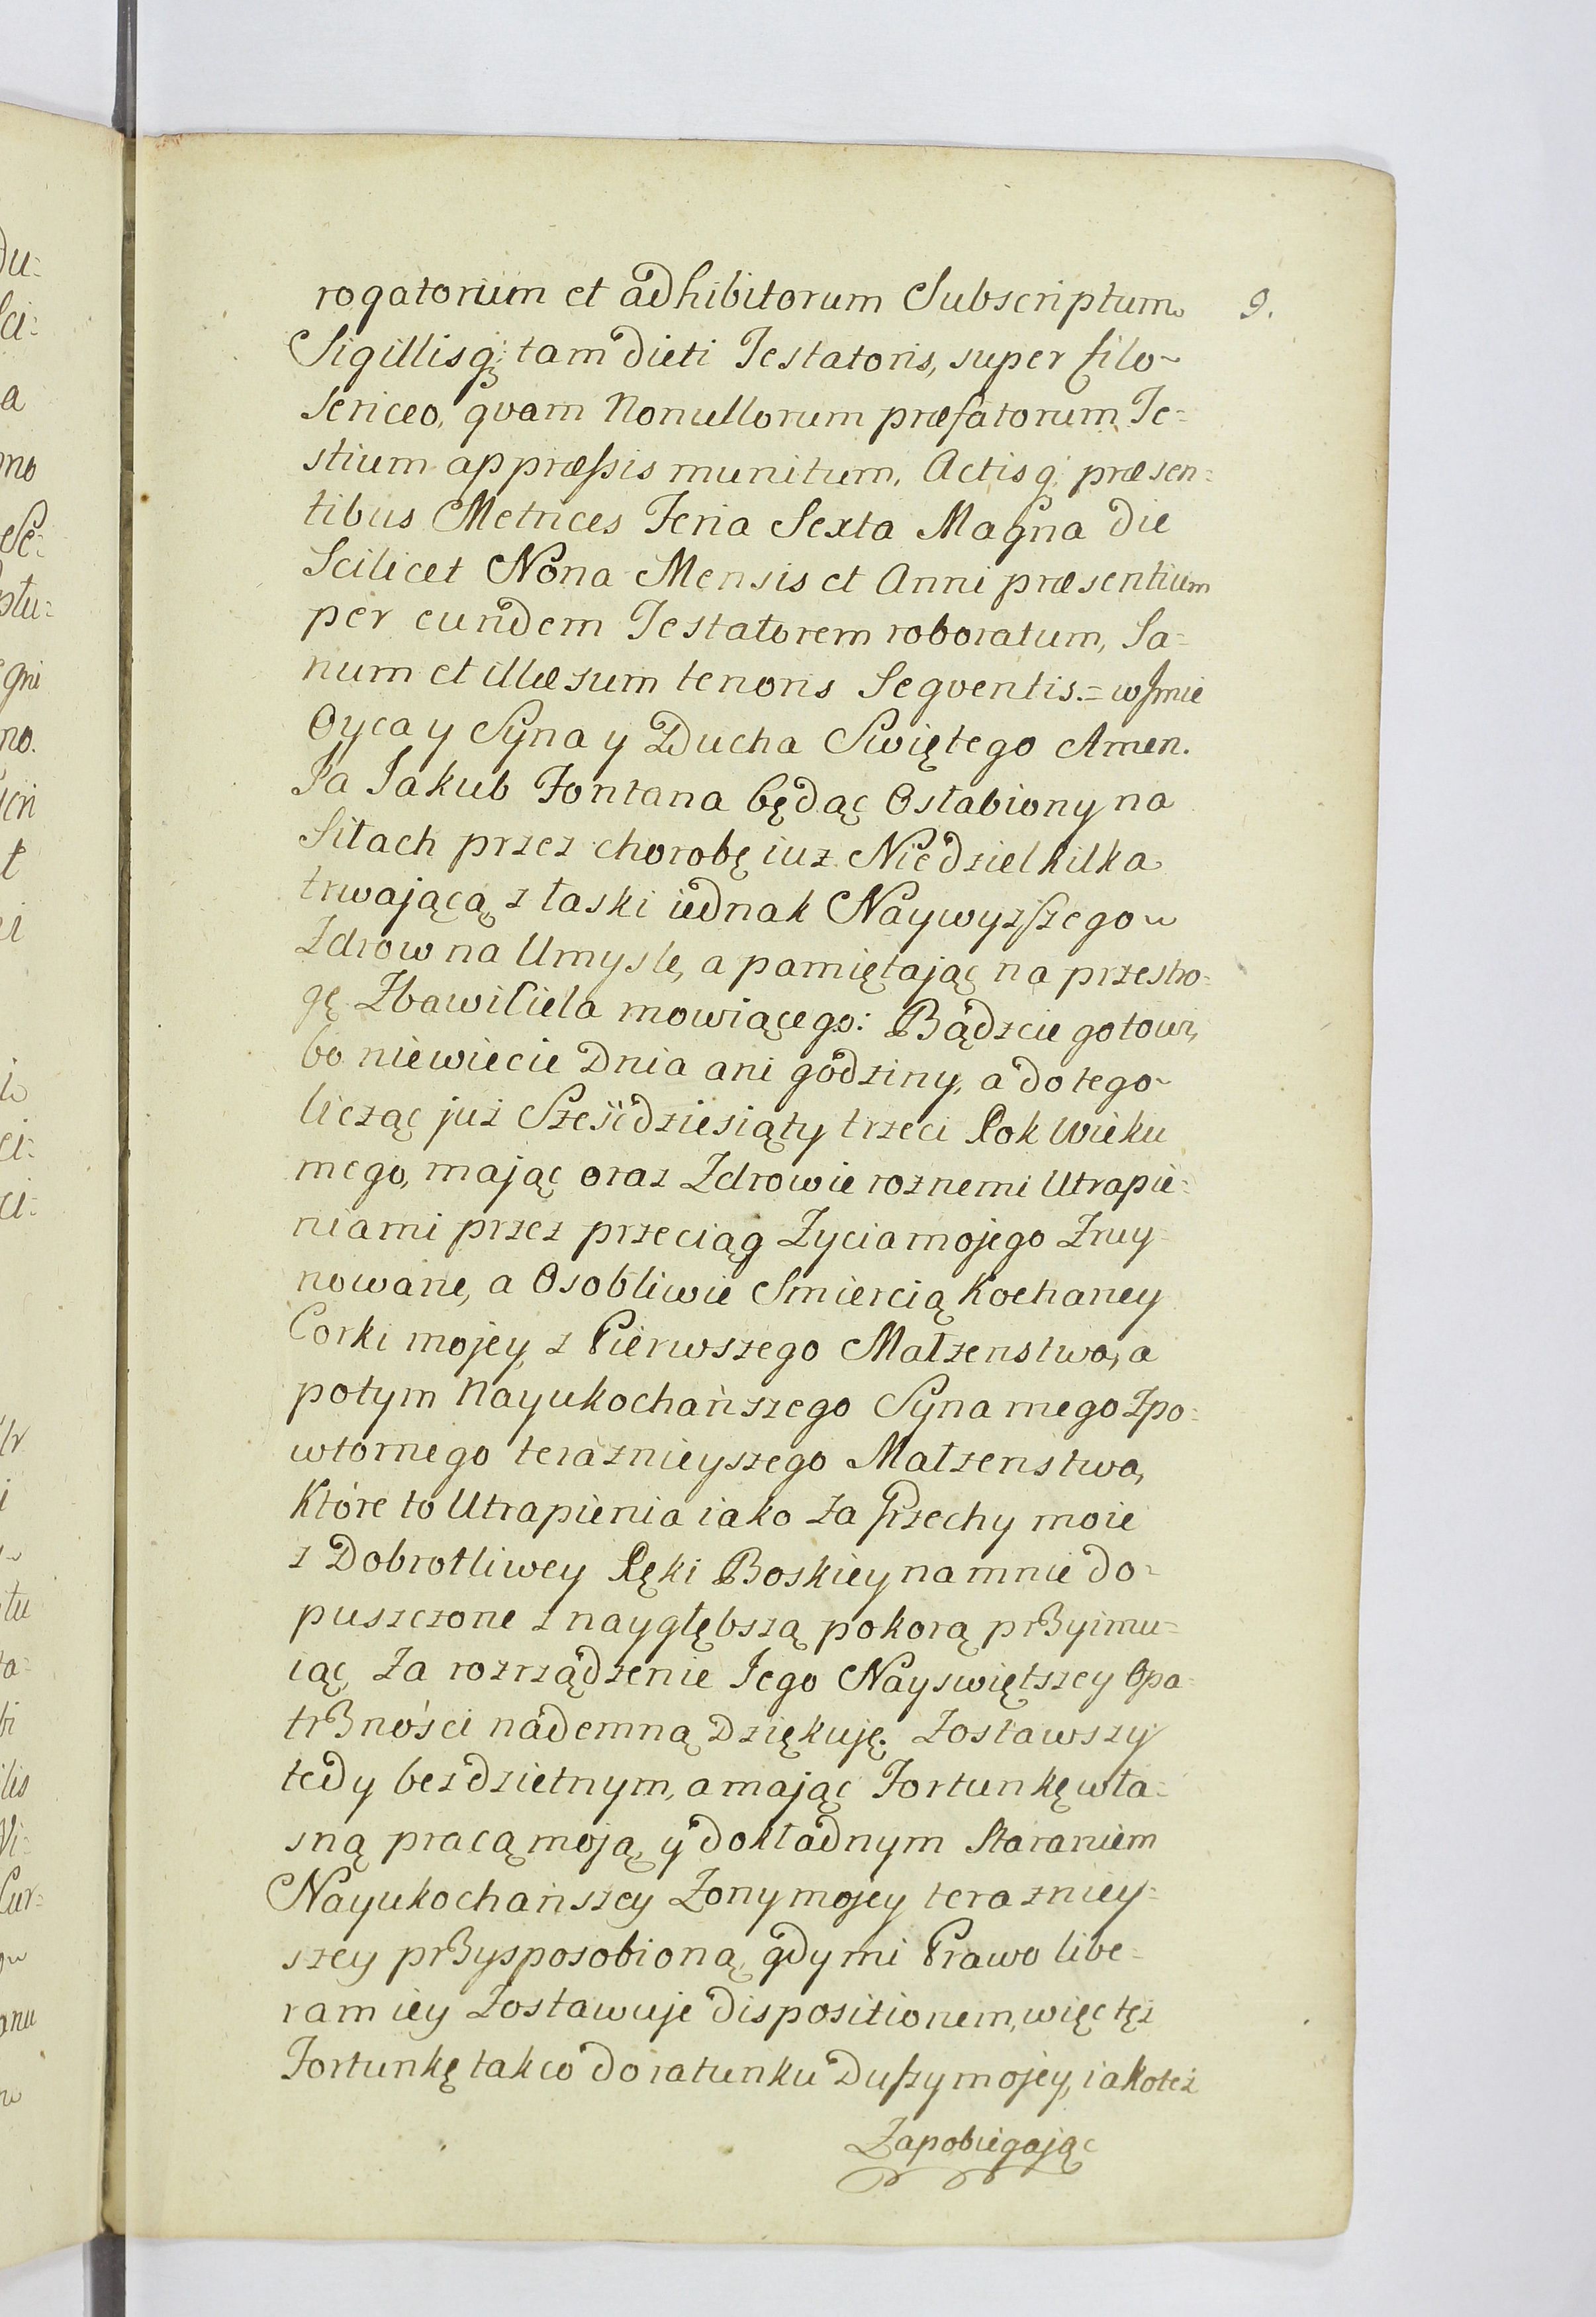 rogatorum et adhibitorum Subscriptum
9.
Sigillisq; tam dicti Testatoris, super filo
sericeo, qvam Nonullorum præfatorum Te=
stium appræssis munitum, Actisq; præsen=
tibus Metrices Feria Sexta Magna die
Scilicet Nona Mensis et Anni præsentium
per eundem Testatorem roboratum, Sa=
num et illæsum tenoris Seqventis.= w Jmie
Oyca y Syna y Ducha Swiętego Amen.
Ja Jakub Fontana będąc Osłabiony na
Siłach przez chorobę iuz Niedziel kilka
trwającą, z łaski iednak Naywyzszego
Zdrow na Umysle, a pamiętając na przestro=
gę Zbawiciela mowiącego: Bądzcie gotowi,
bo niewiecie Dnia ani godziny, a do tego
licząc już Sześćdziesiąty trzeci Rok Wieku
mego, mając oraz Zdrowie roznemi Utrapie=
niami przez przeciąg Zycia mojego Zruy=
nowane, a Osobliwie Smiercią Kochaney
Corki mojey z Pierwszego Małzenstwa, a
potym Nayukochańszego Syna mego z po=
wtornego teraznieyszego Małzenstwa,
Które to Utrapienia iako za Grzechy moie
z Dobrotliwey Ręki Boskiey na mnie do=
puszczone z naygłębszą pokorą przyimu=
iąc, za rozrządzenie Jego Nayswiętszey Opa=
trzności nademną Dziękuję. Zostawszy
tedy bezdzietnym, a mając Fortunkę wła=
sną pracą moją, y dokładnym Staraniem
Nayukochańszey Zony mojey terazniey=
szey przysposobioną, gdy mi Prawo libe=
ram iey Zostawuje dispositionem, więc tęż
Fortunkę tak co do ratunku Duszy mojey, iakoteż
Zapobiegając